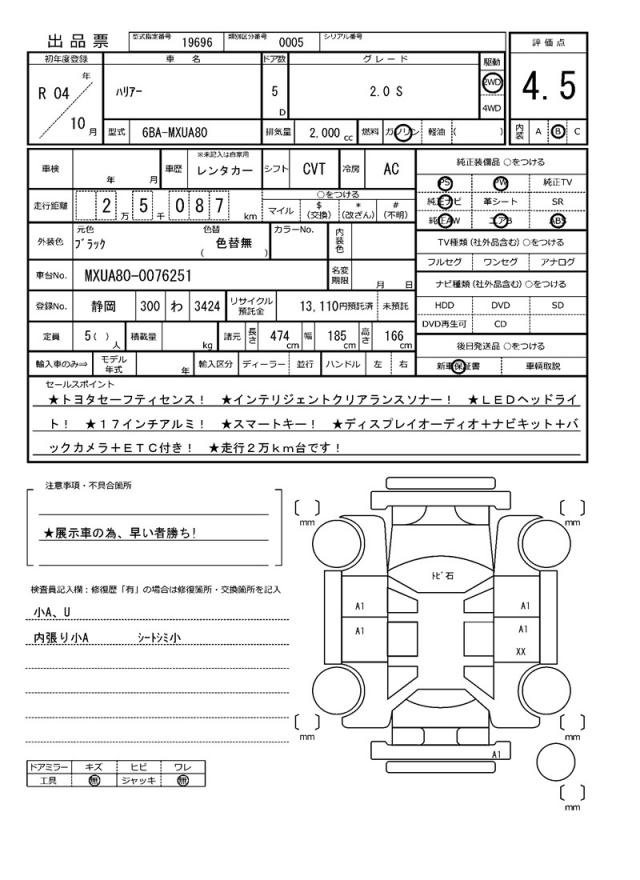 出品票 型式指定番号 19696 類別区分番号 0005 シリアル番号
評価点
4.5
内装 A B C
初年度登録 車名 ドア数 グレード 駆動
R 04 年 10 月
ハリアー 5 D 2.0 S 2WD 4WD
型式 6BA-MXUA80 排気量 2,000 cc 燃料 ガソリン 軽油 ( )
車検 年 月 車歴 ※未記入は自家用 レンタカー シフト CVT 冷房 AC
走行距離 2 万 5 千 0 8 7 km
○をつける
マイル $ (交換) * (改ざん) # (不明)
外装色 元色 ブラック 色替 ( 色替無 ) カラーNo. 内装色
車台No. MXUA80-0076251 名変期限 月 日
登録No. 静岡 300 わ 3424 リサイクル預託金 13,110円預託済 未預託
定員 5( )人 積載量 kg 諸元 長さ 474 cm 幅 185 cm 高さ 166 cm
輸入車のみ⇒ モデル年式 年 輸入区分 ディーラー 並行 ハンドル 左 右
純正装備品 ○をつける
PS PW 純正TV
純正ナビ 革シート SR
純正AW エアB ABS
TV種類 (社外品含む) ○をつける
フルセグ ワンセグ アナログ
ナビ種類 (社外品含む) ○をつける
HDD DVD SD
DVD再生可 CD
後日発送品 ○をつける
新車保証書 車輌取説
セールスポイント
★トヨタセーフティセンス! ★インテリジェントクリアランスソナー! ★LEDヘッドライ
ト! ★17インチアルミ! ★スマートキー! ★ディスプレイオーディオ+ナビキット+バ
ックカメラ+ETC付き! ★走行2万km台です!
注意事項・不具合箇所
★展示車の為、早い者勝ち!
検査員記入欄:修復歴「有」の場合は修復箇所・交換箇所を記入
小A、U
内張り小A シートシミ小
ドアミラー キズ ヒビ ワレ
工具 無 ジャッキ 無
mm
mm
トビ石
A1 A1
A1 A1
XX
mm
mm
A1
mm